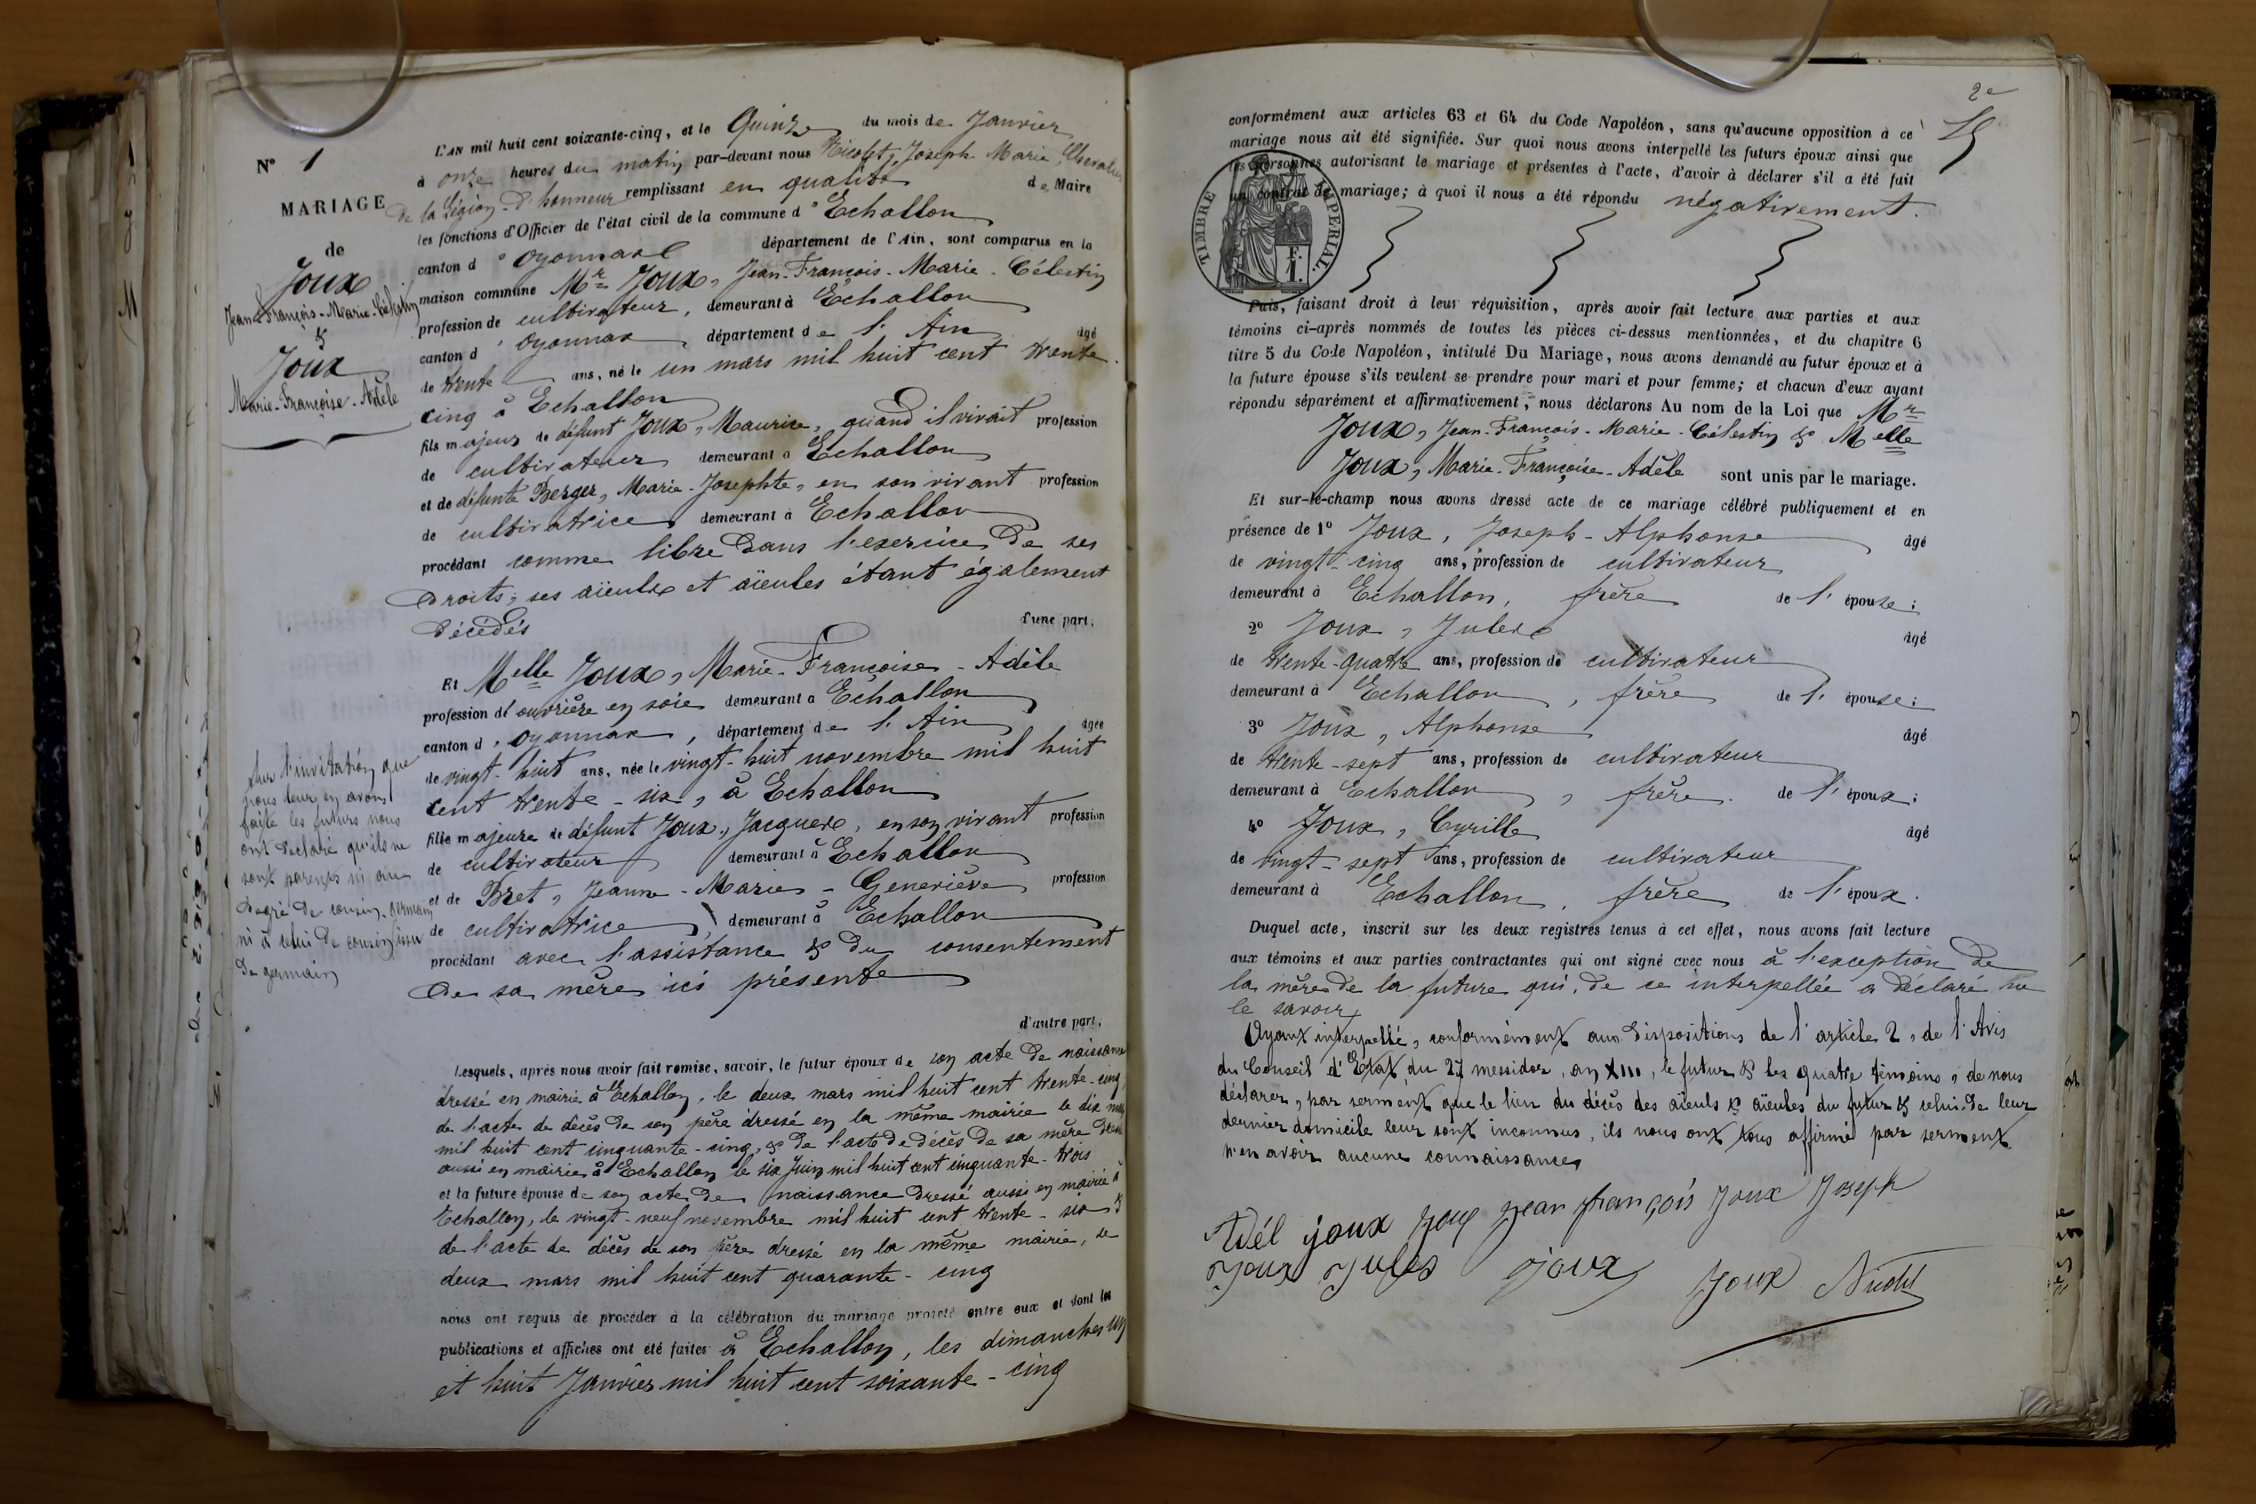 N° 1
MARIAGE
de
Joux
Jean-François-Marie-Célestin
&
Joux
Marie-Françoise-Adèle
L'AN mil huit cent soixante-cinq, et le Quinze du mois de Janvier
à onze heures du matin par-devant nous Nicolet, Joseph-Marie, Chevalier
de la Légion-d'honneur remplissant en qualité de Maire
les fonctions d'Officier de l'état civil de la commune d'Echallon
canton d'Oyonnax département de l'Ain, sont comparus en la
maison commune Mr Joux, Jean-François-Marie-Célestin
profession de cultivateur, demeurant à Echallon
canton d'oyonnax, département de l'Ain âgé
de trente ans, né le un mars mil huit cent trente-
cinq à Echallon
fils majeur de défunt Joux, Maurice, quand il vivait profession
de cultivateur demeurant à Echallon
et de défunte Berger, Marie-Josephte, en son vivant profession
de cultivatrice demeurant à Echallon
procédant comme libre dans l'exercice de ses
droits, ses aïeuls et aïeules étant également
décédés d'une part,
Et Melle Joux, Marie-Françoise-Adèle
profession d'ouvrière en soie demeurant à Echallon
canton d'oyonnax, département de l'Ain âgée
de vingt-huit ans, née le vingt-huit novembre mil huit
cent trente-six, à Echallon
fille majeure de défunt Joux, Jacques, en son vivant profession
de cultivateur demeurant à Echallon
et de Bret, Jeanne-Marie-Geneviève profession
de cultivatrice, demeurant à Echallon
procédant avec l'assistance & du consentement
de sa mère ici présente
d'autre part,
Sur l'invitation que
nous leur en avons
faite les futurs nous
ont déclaré qu'ils ne
sont parents ni au
degré de cousin-germain
ni à celui de cousin issu
de germain
Lesquels, après nous avoir fait remise, savoir, le futur époux de son acte de naissance
dressé en mairie à Echallon, le deux mars mil huit cent trente-cinq,
de l'acte de décès de son père dressé en la même mairie le dix mars
mil huit cent cinquante-cinq, & de l'acte de décès de sa mère dressé
aussi en mairie à Echallon le six Juin mil huit cent cinquante-trois
et la future épouse de son acte de naissance dressé aussi en mairie à
Echallon, le vingt-neuf novembre mil huit cent trente-six &
de l'acte de décès de son père dressé en la même mairie, le
deux mars mil huit cent quarante-cinq
nous ont requis de procéder à la célébration du mariage projeté entre eux et dont les
publications et affiches ont été faites à Echallon, les dimanches un
et huit Janvier mil huit cent soixante-cinq
2e
conformément aux articles 63 et 64 du Code Napoléon, sans qu'aucune opposition à ce
mariage nous ait été signifiée. Sur quoi nous avons interpellé les futurs époux ainsi que
les personnes autorisant le mariage et présentes à l'acte, d'avoir à déclarer s'il a été fait
un contrat de mariage; à quoi il nous a été répondu négativement.
TIMBRE IMPERIAL.
Puis, faisant droit à leur réquisition, après avoir fait lecture aux parties et aux
témoins ci-après nommés de toutes les pièces ci-dessus mentionnées, et du chapitre 6
titre 5 du Code Napoléon, intitulé Du Mariage, nous avons demandé au futur époux et à
la future épouse s'ils veulent se prendre pour mari et pour femme; et chacun d'eux ayant
répondu séparément et affirmativement, nous déclarons Au nom de la Loi que Mr
Joux, Jean-François-Marie-Célestin & Melle
Joux, Marie-Françoise-Adèle sont unis par le mariage.
Et sur-le-champ nous avons dressé acte de ce mariage célébré publiquement et en
présence de 1° Joux, Joseph-Alphonse âgé
de vingt-cinq ans, profession de cultivateur
demeurant à Echallon, frère de l'épouse;
2° Joux, Jules âgé
de trente-quatre ans, profession de cultivateur
demeurant à Echallon, frère de l'épouse;
3° Joux, Alphonse âgé
de trente-sept ans, profession de cultivateur
demeurant à Echallon, frère de l'époux;
4° Joux, Cyrille âgé
de vingt-sept ans, profession de cultivateur
demeurant à Echallon, frère de l'époux.
Duquel acte, inscrit sur les deux registres tenus à cet effet, nous avons fait lecture
aux témoins et aux parties contractantes qui ont signé avec nous à l'exception de
la mère de la future qui, de ce interpellée a déclaré ne
le savoir
Ayant interpellé, conformément aux dispositions de l'article 2, de l'Avis
du Conseil d'Etat du 27 messidor, an XIII, le futur & les quatre témoins, de nous
déclarer, par serment que le lieu du décès des aïeuls & aïeules du futur & celui de leur
dernier domicile leur sont inconnus, ils nous ont tous affirmé par serment
n'en avoir aucune connaissance
Adél joux Joux jean françois Joux Joseph
Joux Jules joux Joux Nicolet